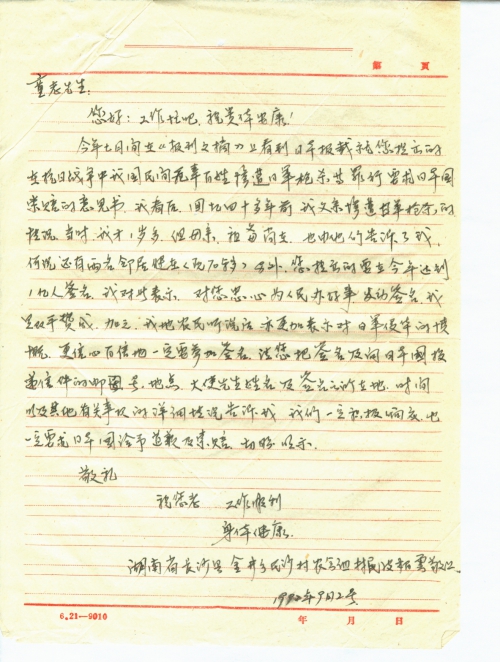 第 页
童志先生:
您好: 工作忙吧, 祝贵体安康!
今年七月间在《报刊文摘》上看到日本报载就您提出的
在抗日战争中我国民间无辜百姓惨遭日军枪杀等罪行要求日本国
索赔的意见书, 我看后, 回忆四十多年前我父亲惨遭日军枪杀的
情况, 当时, 我才1岁多, 但母亲, 祖母尚在, 也由他们告诉了我,
何况还有两名邻居健在(现70多) 另外, 您提出的要在今年达到
亿人签名, 我对此表示, 对您忠心为人民办好事 发动签名, 我
双手赞成, 加之, 我地农民听说后 亦更加表示对日军侵华的愤
慨, 更信心百倍地一定要参加签名, 请您把签名及向日本国投
递信件的邮 号, 地点, 大使先生姓名 及签名之所在地, 时间
以及其他有关事项的详细情况告诉我 我们一定积极响应, 也
一定要求日本国给予道歉及索赔, 切盼明示.
敬礼
祝您老 工作顺利
身体健康.
湖南省长沙县金井乡民沙村农会组村民
1992年9月2号
6.21—9010 年 月 日